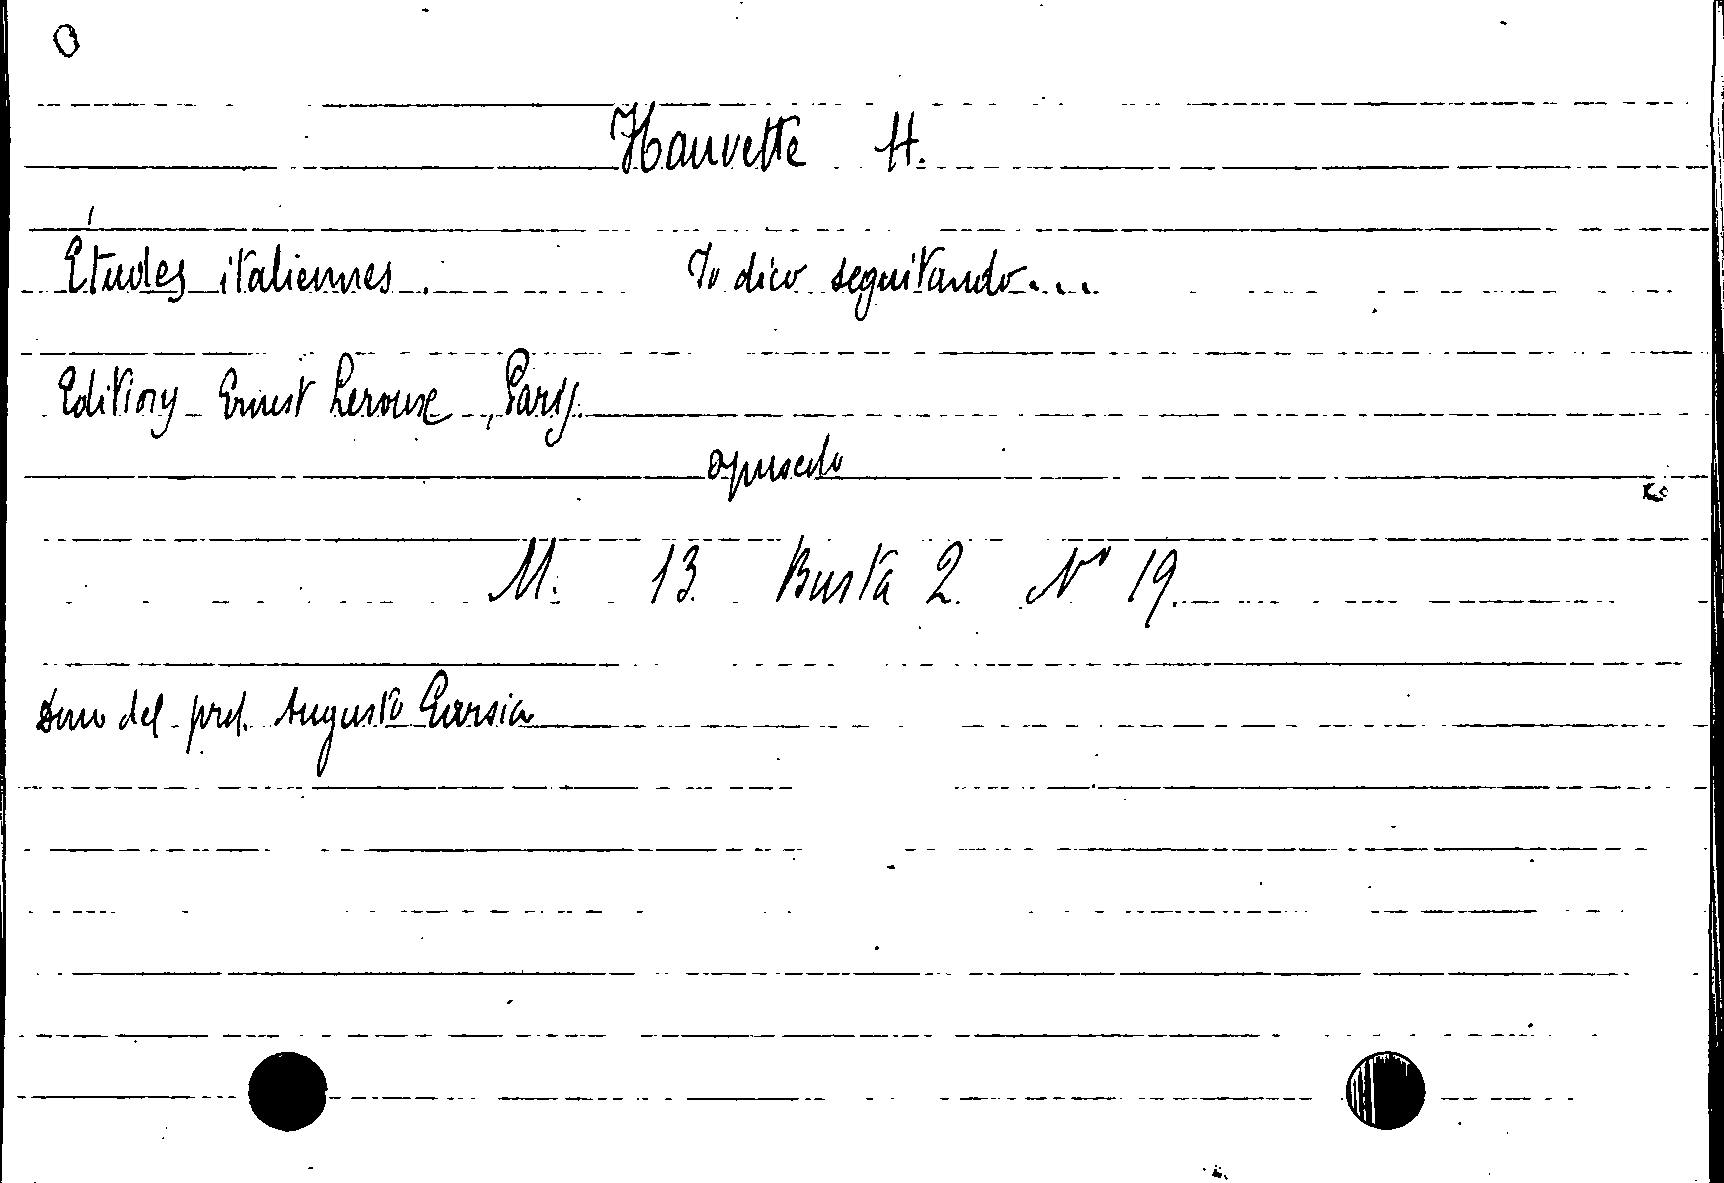 O
Hauvette H.
Études italiennes. Io dico seguitando...
Editions Ernest Leroux, Paris.
opuscolo
M. 13 Busta 2 N° 19.
Dono del prof. Augusto Garsia